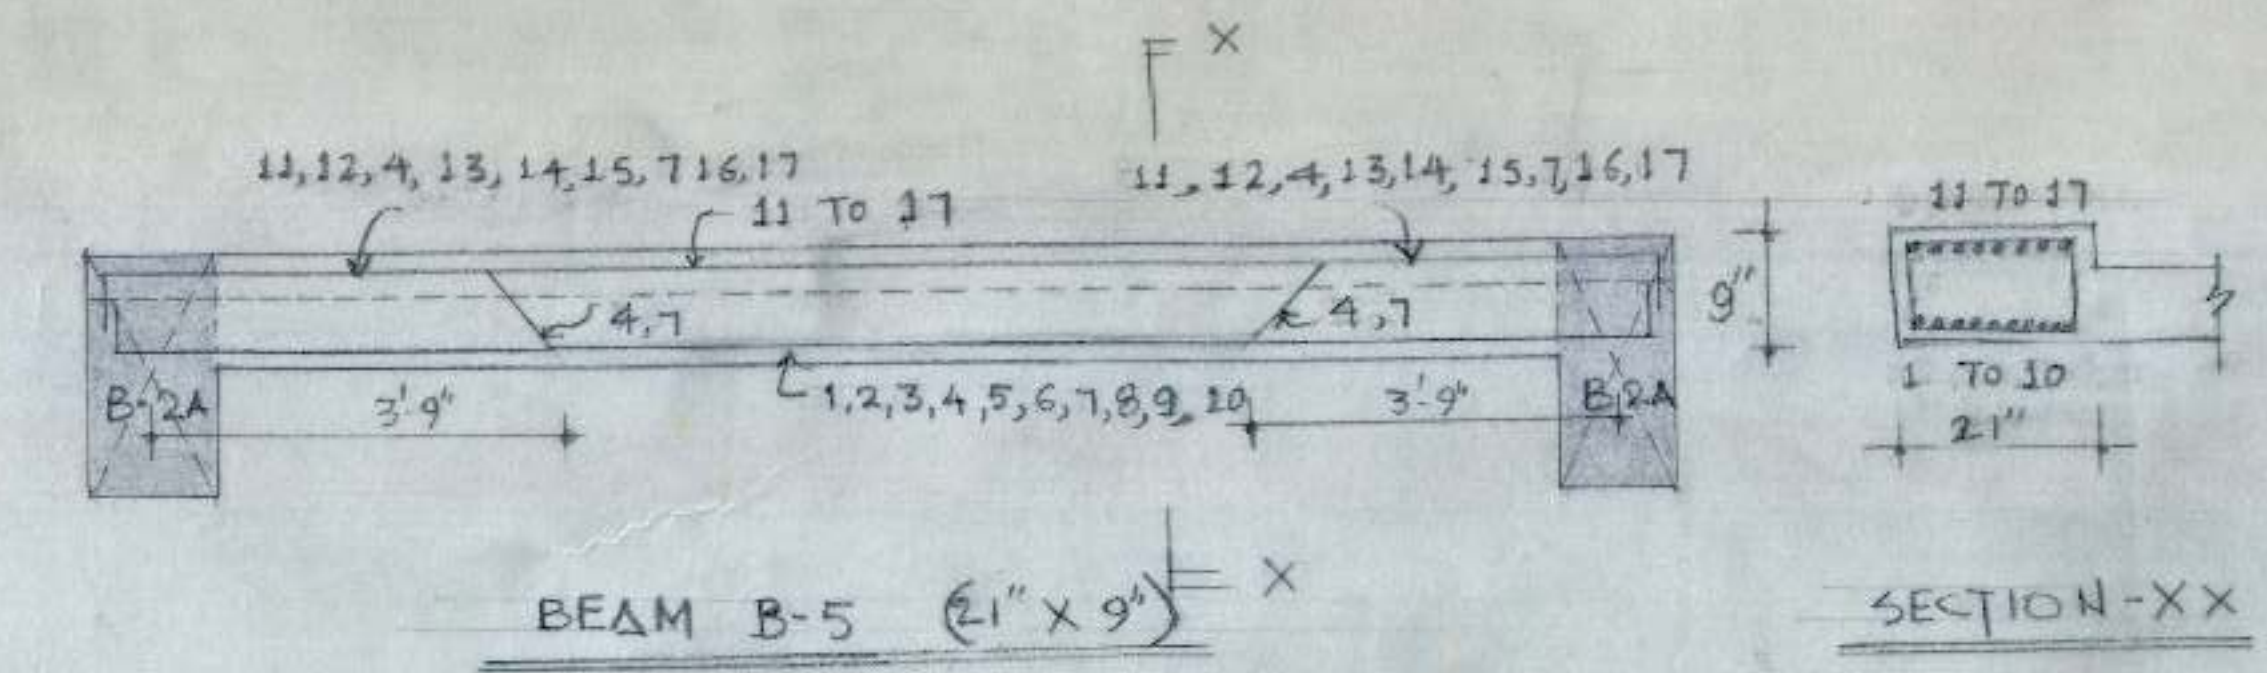 X
11,12,4,13,14,15,7 16,17
11,12,4,13,14,15,7,16,17
11 TO 17
11 TO 17
4,7
4,7
9"
1,2,3,4,5,6,7,8,9,10
1 TO 10
B-2A
3'-9"
3'-9"
B-2A
21"
X
BEAM B-5 (21" X 9")
SECTION-XX